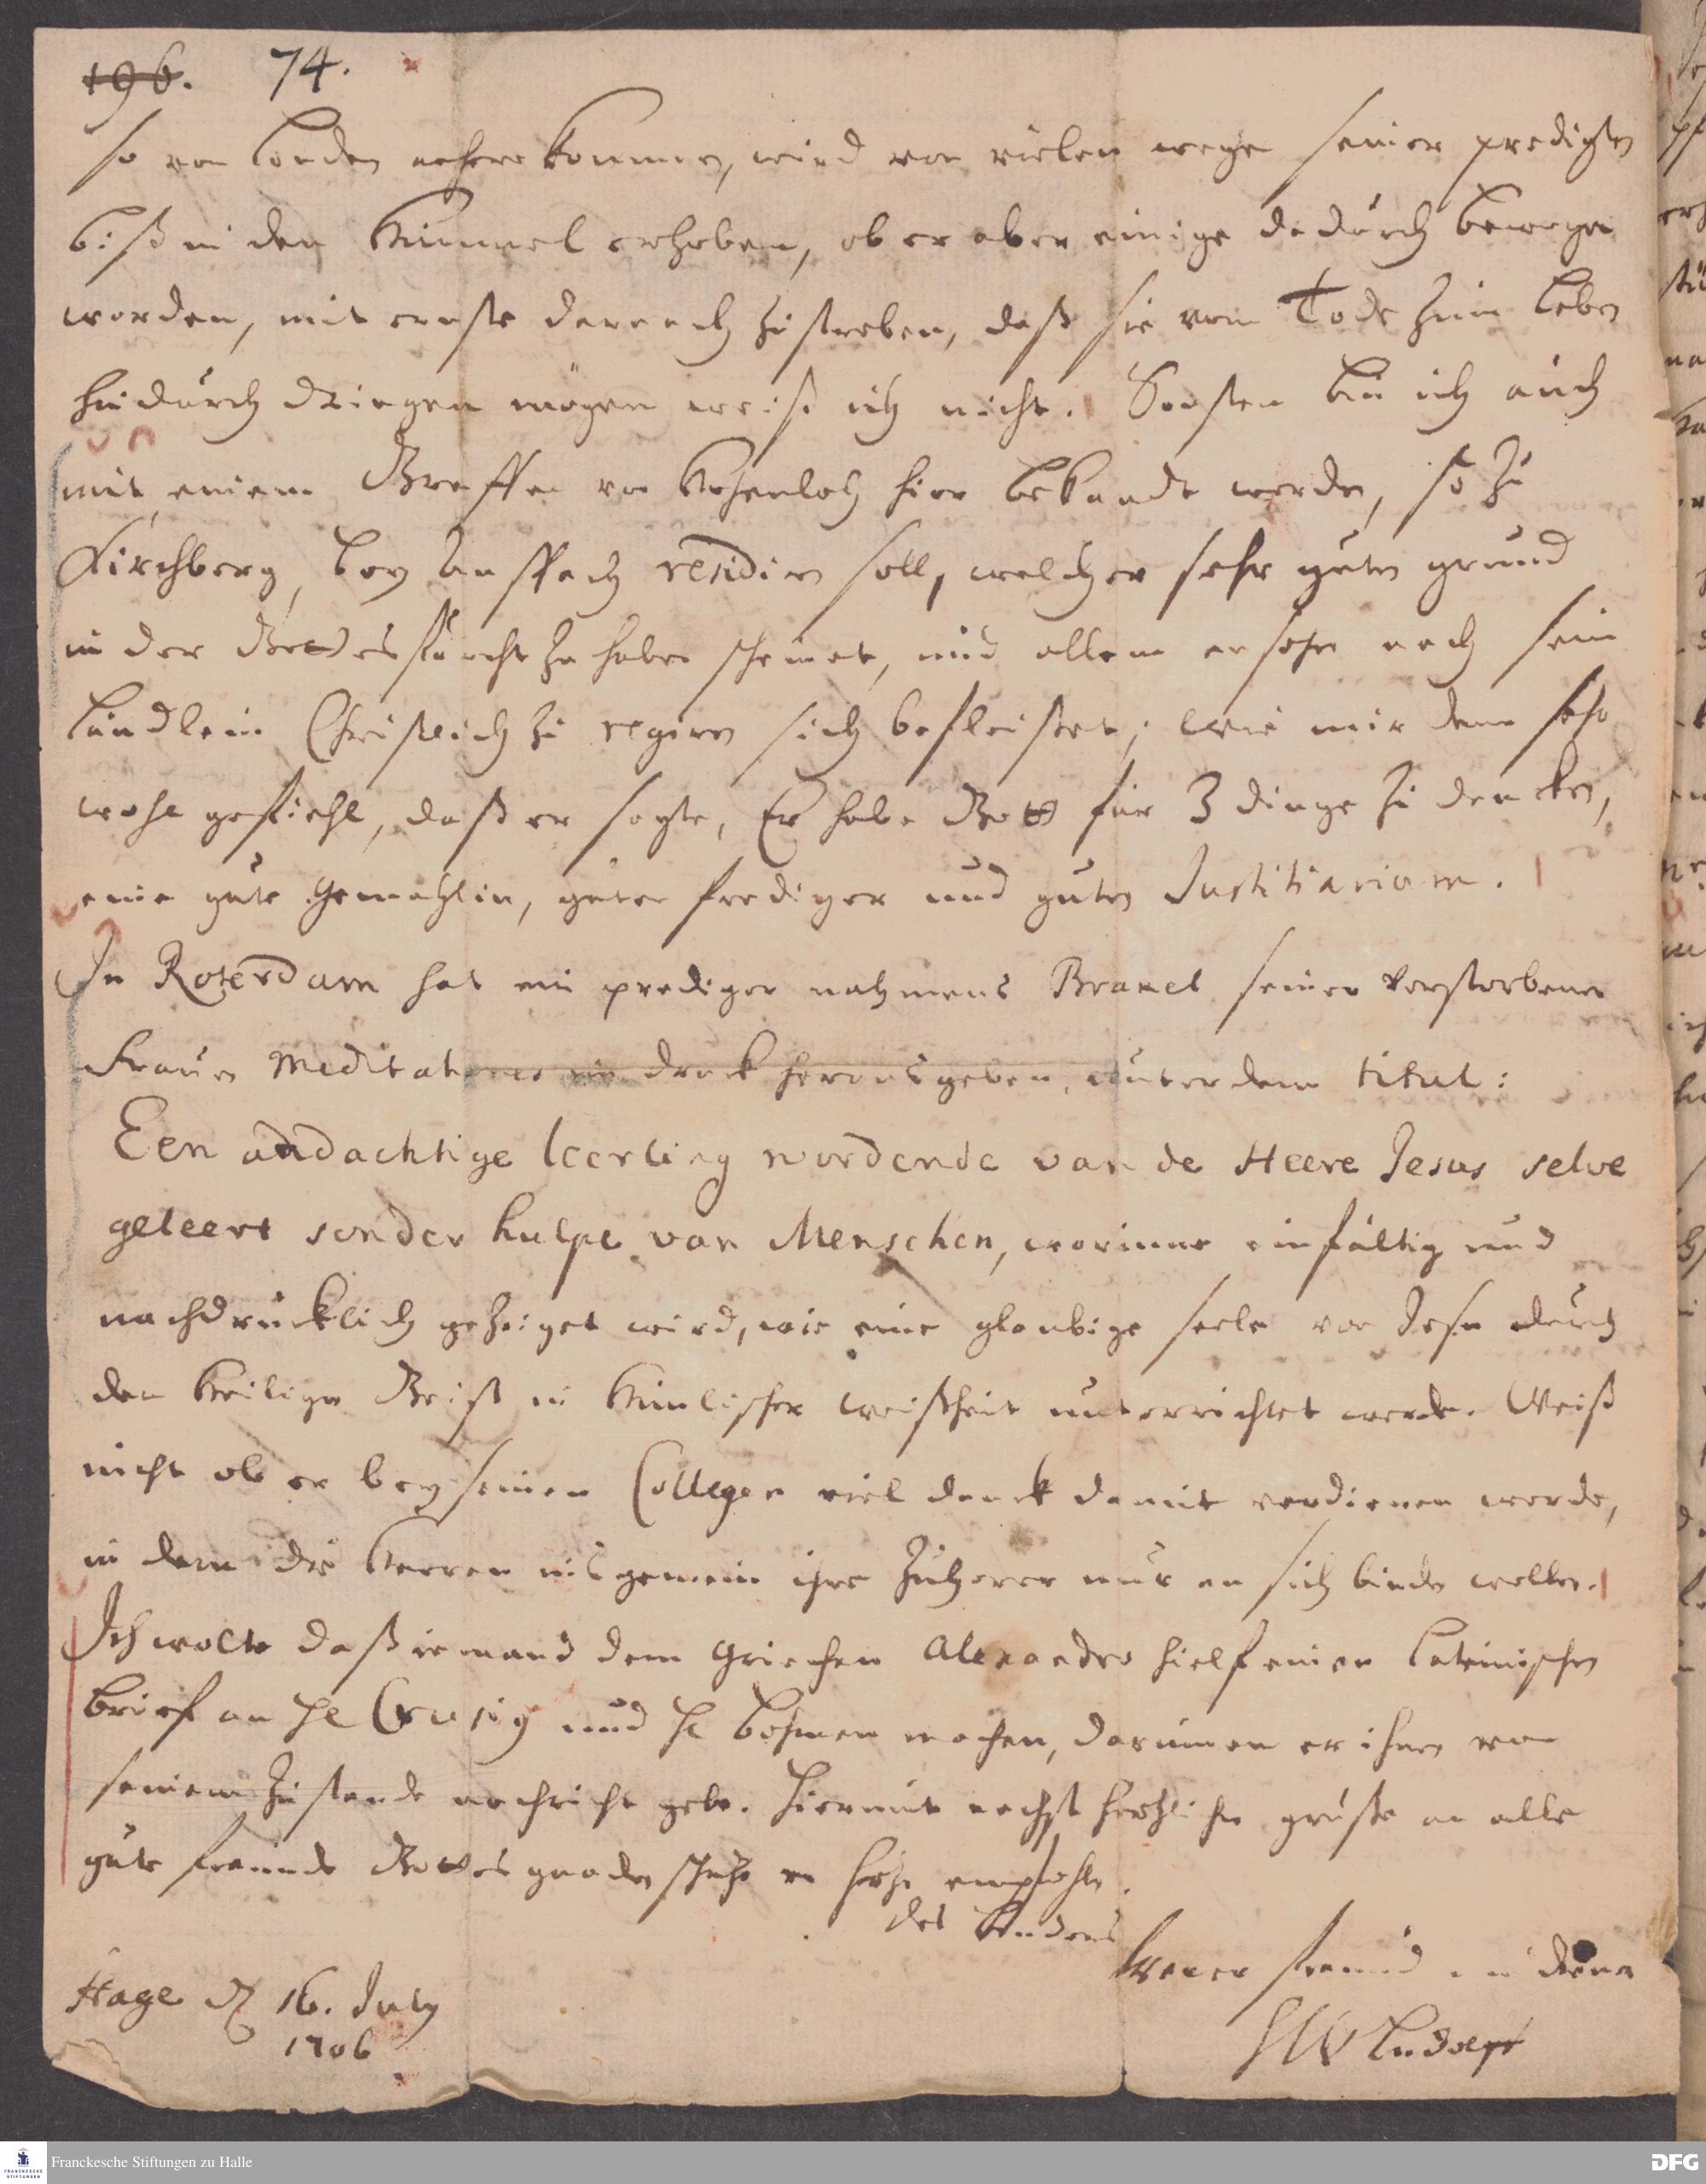 196. 74.
so von Londen anhero kommen, wird von vielen wegen seiner predigten
biß in den Himmel erhoben, ob er aber einige dadurch bewogen
worden, mit ernste darnach zu streben, daß sie vom Tode zum Leben
hindurch dringen mögen weiß ich nicht. Sonsten bin ich auch
mit einem Graffen von Hohenloh hier bekandt worden, so zu
Kirchberg, bey Anspach residiren soll, welcher sehr guten grund
in der Gottesfurcht zu haben scheinet, und allem ansehn nach sein
Ländlein Christlich zu regiren sich befleisset; wie mir denn sehr
wohl gefiehl, daß er sagte, Er habe Gott für 3 dinge zu dencken,
eine gute Gemahlin, guten prediger und guten Justitiarium.
In Roterdam hat ein prediger nahmens Brakel seiner verstorbenen
Frauen Meditationes in druck herausgeben, unter dem titul:
Een andachtige leerling wordende van de Heere Jesus selve
geleert sonder hulpe van Menschen, worinne einfältig und
nachdrücklich gezeiget wird, wie eine glaubige seele von Jesu durch
den Heiligen Geist in Himlischer weißheit unterrichtet werde. Weiß
nicht ob er bey seinen Collegen viel danck damit verdienen werde,
in dem die Herren ins gemein ihre Zuhörer nur an sich binden wollen.
Ich wolte daß iemand dem Griechen Alexandro hielf einen Lateinischen
brief an H Crusig und H Böhmen machen, darinnen er ihnen von
seinem Zustande nachricht gebe. Hiermit nechst hertzlichen grüße an alle
gute freunde Gottes gnaden schutz von hertzen empfohlen.
des Bruders
Hage d 16. July
1706
treuer freund und diener
HWLudolf
Franckesche Stiftungen zu Halle
DFG